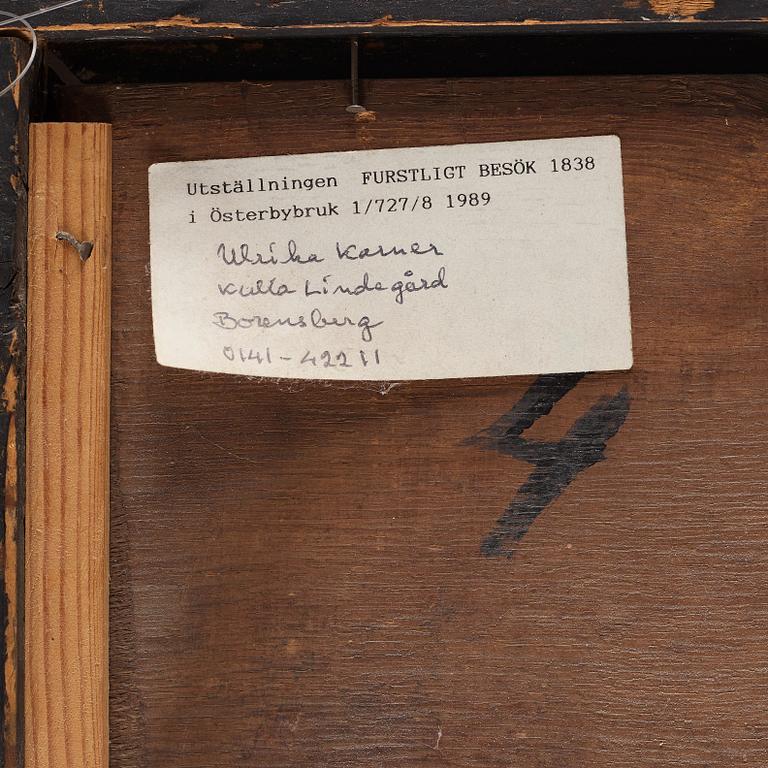 Utställningen FURSTLIGT BESÖK 1838
i Österbybruk 1/727/8 1989
Ulrika Karner
Kulla Lindegård
Borensberg
0141-42211
4